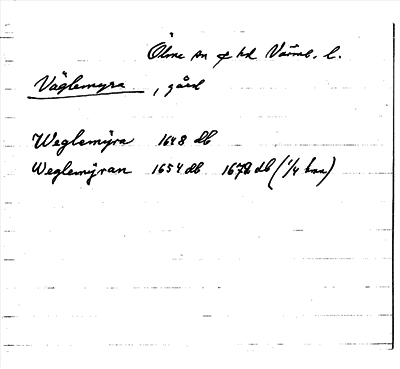 Ölme sn o hd Värml. l.
Väglemyra, gård
Weglemÿra 1648 db
Weglemÿran 1654 db 1678 db (1/4 hmn)